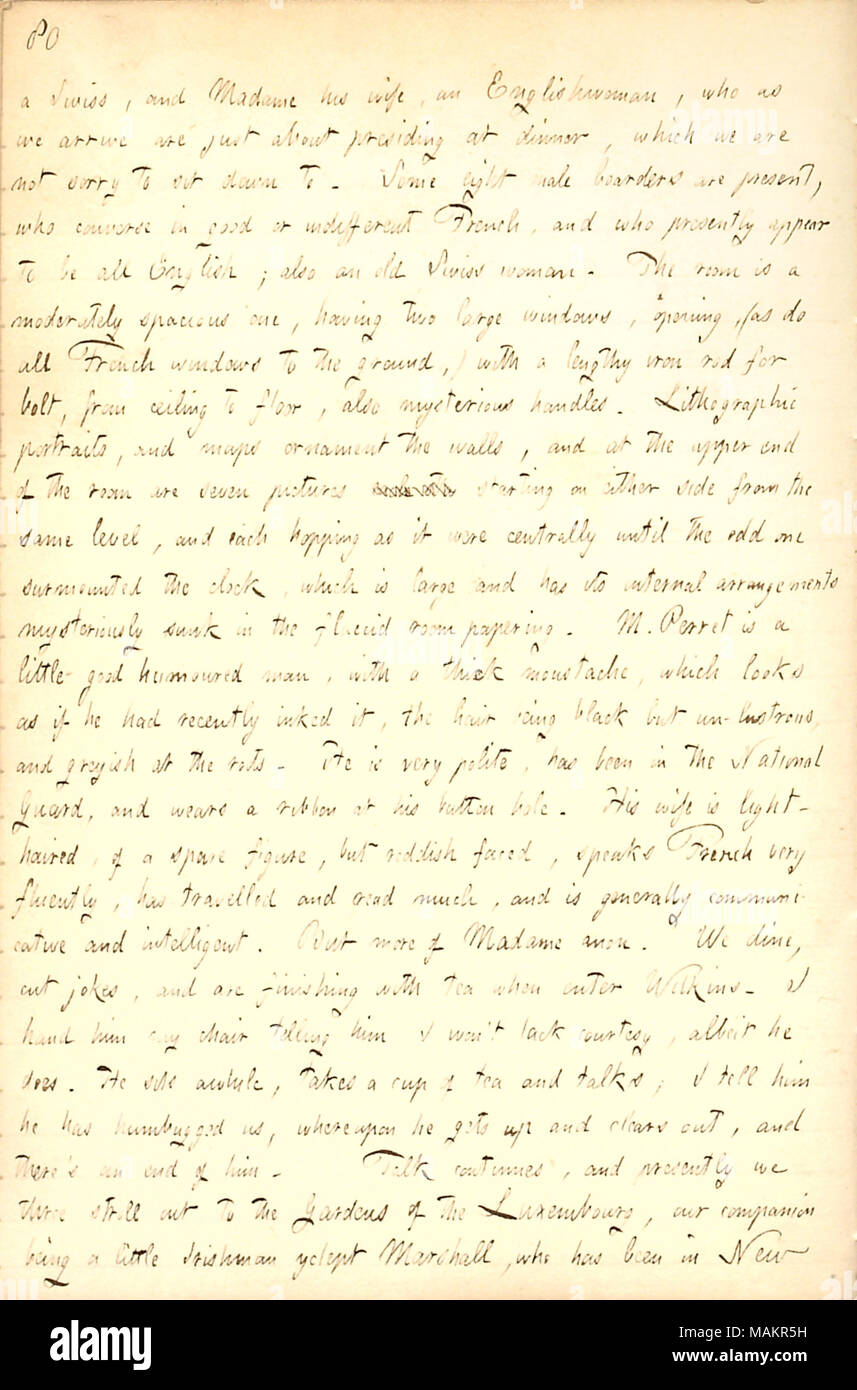 80
a Swiss, and Madame his wife, an Englishwoman, who as
we arrive are just about presiding at dinner, which we are
not sorry to sit down to. Some eight male boarders are present,
who converse in good or indifferent French, and who presently appear
to be all English; also an old Swiss woman. The room is a
moderately spacious one, having two large windows, opening, (as do
all French windows to the ground,) with a lengthy iron rod for
bolt, from ceiling to floor, also mysterious handles. Lithographic
portraits, and maps ornament the walls, and at the upper end
of the room are seven pictures starting on either side from the
same level, and each hopping as it were centrally until the odd one
surmounted the clock, which is large and has its internal arrangements
mysteriously sunk in the flaccid room papering. M. Perret is a
little good humoured man, with a thick moustache, which looks
as if he had recently inked it, the hair being black but un-lustrous,
and greyish at the roots. He is very polite, has been in the National
Guard, and wears a ribbon at his button hole. His wife is light-
haired, of a spare figure, but reddish faced, speaks French very
fluently, has travelled and read much, and is generally communi-
cative and intelligent. But more of Madame anon. We dine,
cut jokes, and are finishing with tea when enter Wilkins. I
hand him my chair telling him I won't lack courtesy, albeit he
does. He sits awhile, takes a cup of tea and talks; I tell him
he has humbugged us, whereupon he gets up and clears out, and
there's an end of him. Talk continues, and presently we
three stroll out to the Gardens of the Luxembourg, our companion
being a little Irishman yclept Marshall, who has been in New
alamy
Image ID: MAKR5H
www.alamy.com